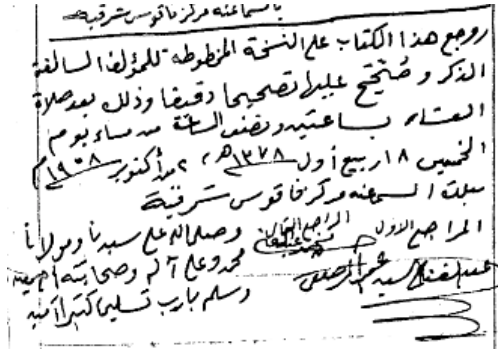 بالسماعنه مركز فاقوس شرقية
روجع هذا الكتاب على النسخة المخطوطه للمؤلف السالفة
الذكر وصُحِّح عليها تصحيحا دقيقا وذلك بعد صلاة
العشاء بساعتين ونصف الساعة من مساء يوم
الخميس ١٨ ربيع أول ١٣٧٨ﻫ، ٢ من أكتوبر ١٩٥٨م
ببلدة السماعنه مركز فاقوس شرقية
المراجع الأول المراجع الثانى وصلى الله على سيدنا ومولانا
محمد وعلى آله وصحابته أجمعين
السيد
وسلم يارب تسليما كثيرا آمين